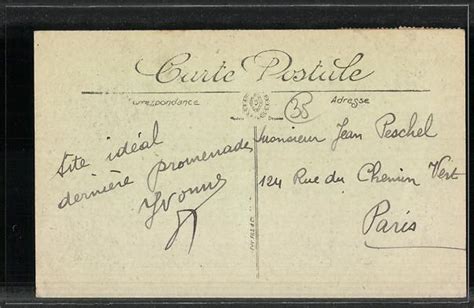 Carte Postale
Correspondance
Adresse
35
Site idéal
dernière promenade
Yvonne
Monsieur Jean Peschel
124 Rue du Chemin Vert
Paris